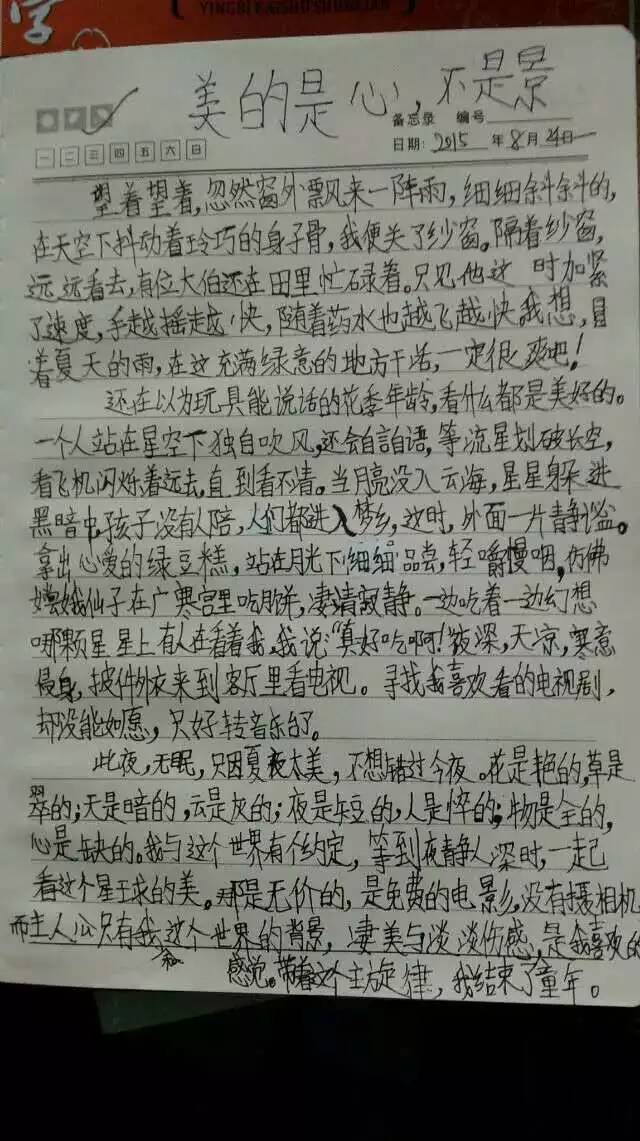 字
YINGBI KAISHU SHUXIELIAN
美的是心,不是景
备忘录 编号
一 二 三 四 五 六 日
日期: 2015 年 8 月 24日
望着望着,忽然窗外飘来一阵雨,细细斜斜的,
在天空下抖动着玲巧的身子骨,我便关了纱窗。隔着纱窗,
远远看去,有位大伯还在田里忙碌着。只见他这 时加紧
了速度,手越摇越快,随着药水也越飞越快。我想,冒
着夏天的雨,在这充满绿意的地方干活,一定很爽吧!
还在以为玩具能说话的花季年龄,看什么都是美好的。
一个人站在星空下独自吹风,还会自言自语,等流星划破长空,
看飞机闪烁着远去,直到看不清。当月亮没入云海,星星躲进
黑暗中,孩子没有人陪,人们都进入梦乡,这时,外面一片静谧。
拿出心爱的绿豆糕,站在月光下细细品尝,轻嚼慢咽,仿佛
嫦娥仙子在广寒宫里吃月饼,凄清寂静。一边吃着一边幻想
哪颗星星上有人在看着我,我说:“真好吃啊!”夜深,天凉,寒意
侵身,披件外衣来到客厅里看电视。寻找我喜欢看的电视剧,
却没能如愿,只好转音乐台了。
此夜,无眠,只因夏夜太美,不想错过今夜。花是艳的,草是
翠的;天是暗的,云是灰的;夜是短的,人是悴的;物是全的,
心是缺的。我与这个世界有个约定,等到夜静人深时,一起
看这个星球的美。那是无价的,是免费的电影,没有摄相机,
而主人公只有我这个世界的背景,凄美与淡淡伤感,是我喜欢的
和
感觉。带着这个主旋律,我结束了童年。